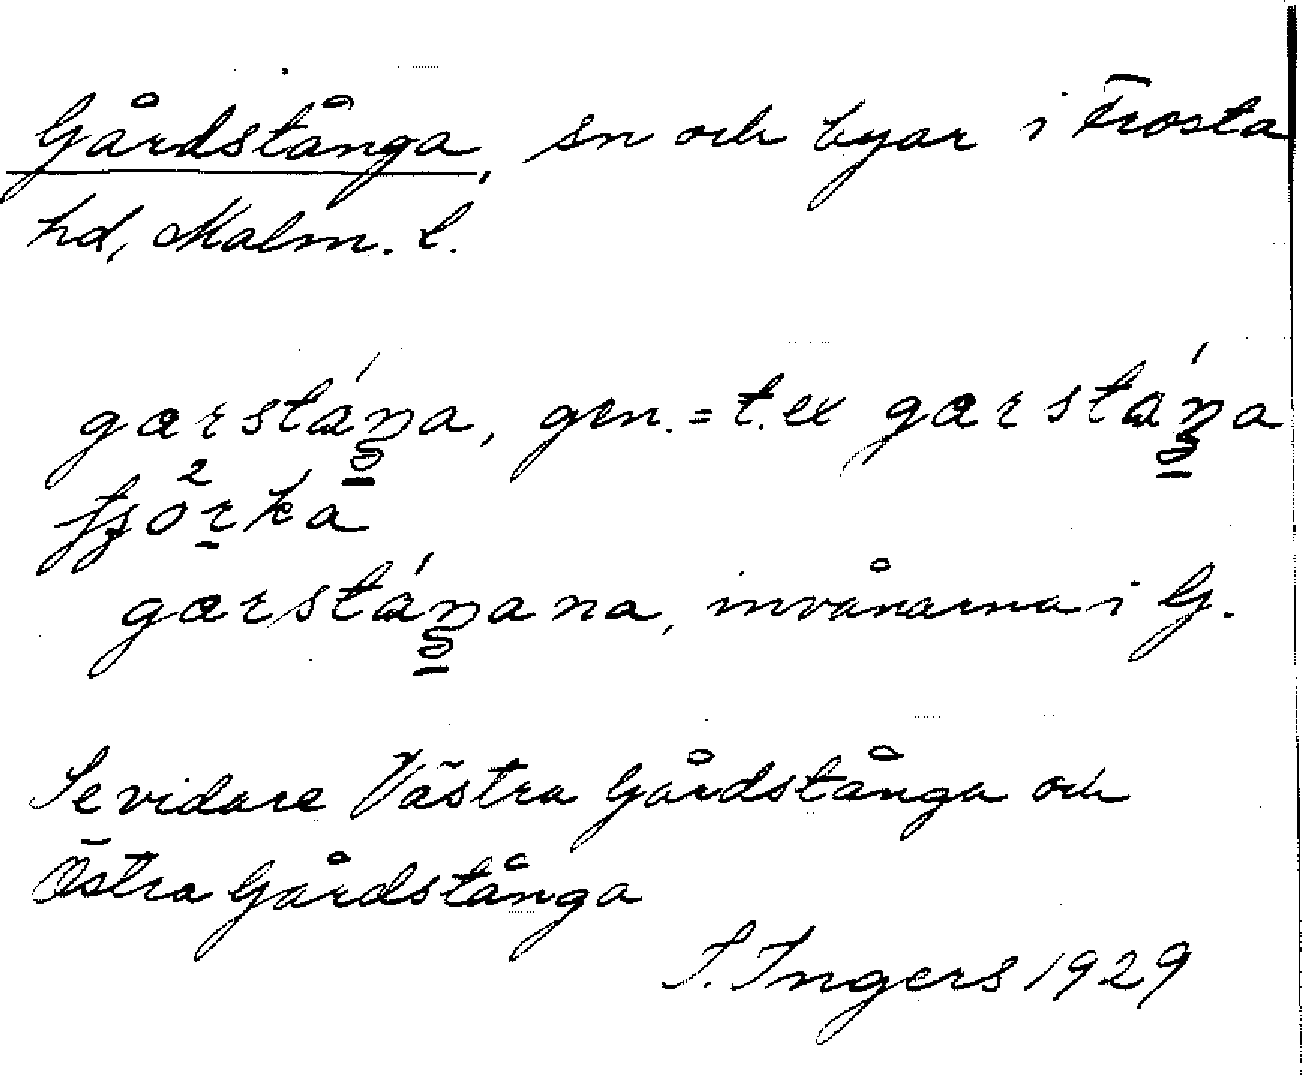 Gårdstånga, sn och byar i Frosta
hd, Malm. l.
garstáŋa, gen. = t.ex garstáŋa
tjörka
garstáŋana, invånarna i G.
Se vidare Västra Gårdstånga och
Östra Gårdstånga
I. Ingers 1929